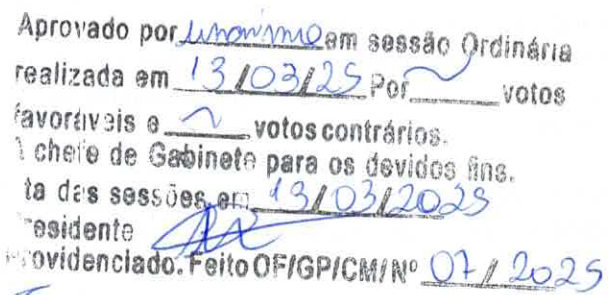 Aprovado por unanime em sessão Ordinária
realizada em 13/03/25 Por votos
favoráveis e votos contrários.
chefe de Gabinete para os devidos fins.
ta das sessões em 13/03/2025
residente
rovidenciado. Feito OF/GP/CM/Nº 07/2025